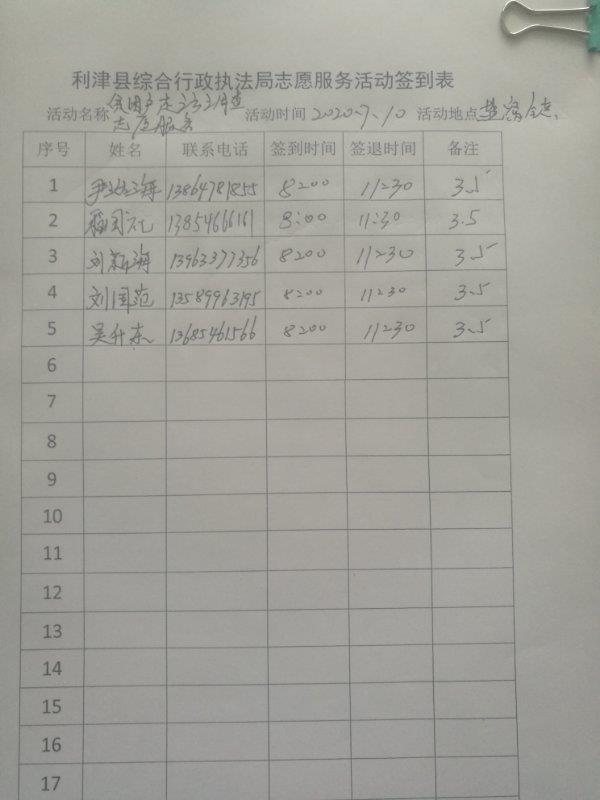 利津县综合行政执法局志愿服务活动签到表
活动名称 志愿服务 活动时间 2020.7.10 活动地点
序号 姓名 联系电话 签到时间 签退时间 备注
1 13864781855 8:00 11:30 3.5
2 13854666161 8:00 11:30 3.5
3 刘新海 13963377356 8:00 11:30 3.5
4 刘国范 13589963195 8:00 11:30 3.5
5 吴升东 13685461566 8:00 11:30 3.5
6
7
8
9
10
11
12
13
14
15
16
17